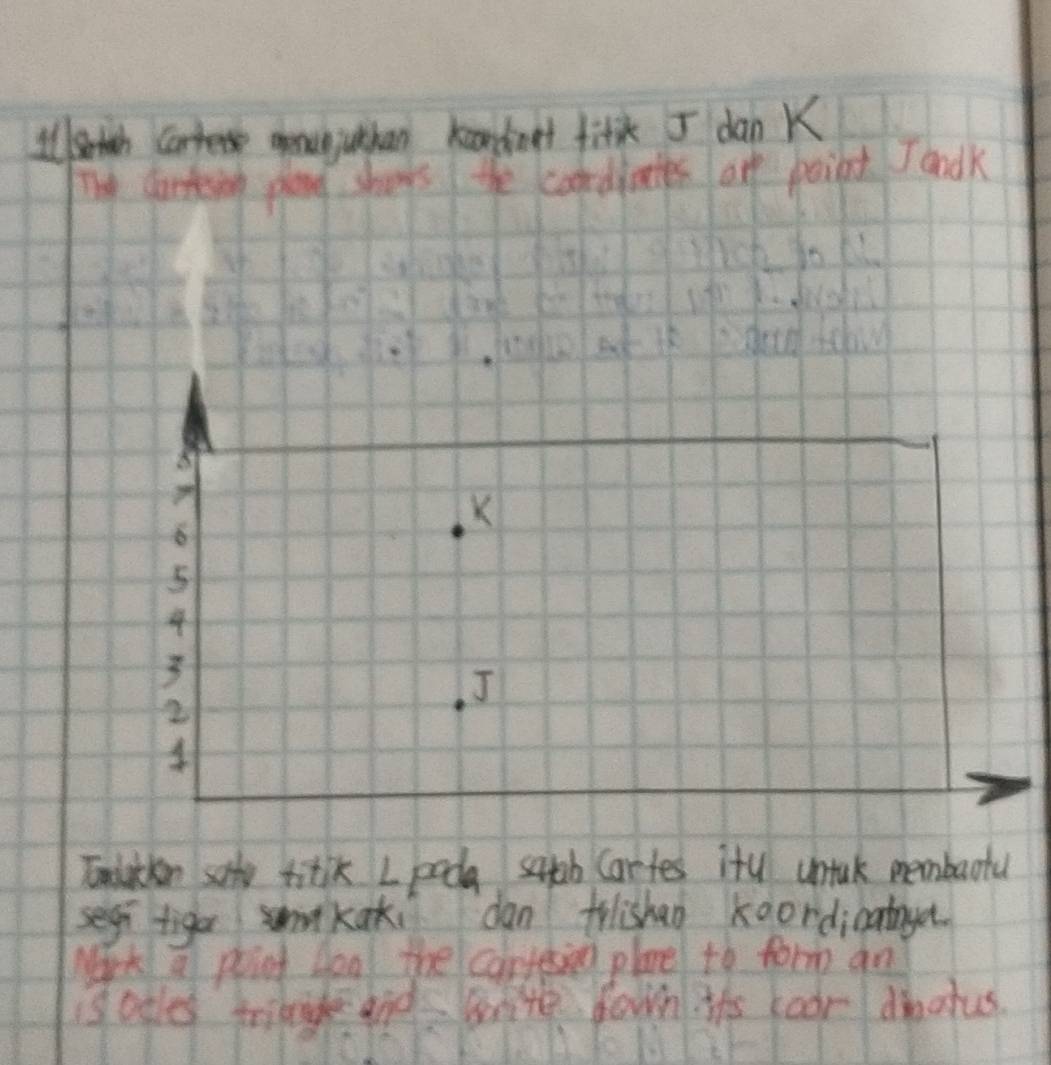 11 Satah Cartens menunjukkan koordinat titik J dan K
The Cartesian plane shows the coordinates of point J and K
8
7
K
6
5
4
3
J
2
1
Tandakan satu titik L pada satah Cartes itu untuk membantu
segi tiga sama kaki dan tulishan koordinatnya.
Mark a point L on the cartesian plane to form an
isocles triangle and write down its coor dinatus.